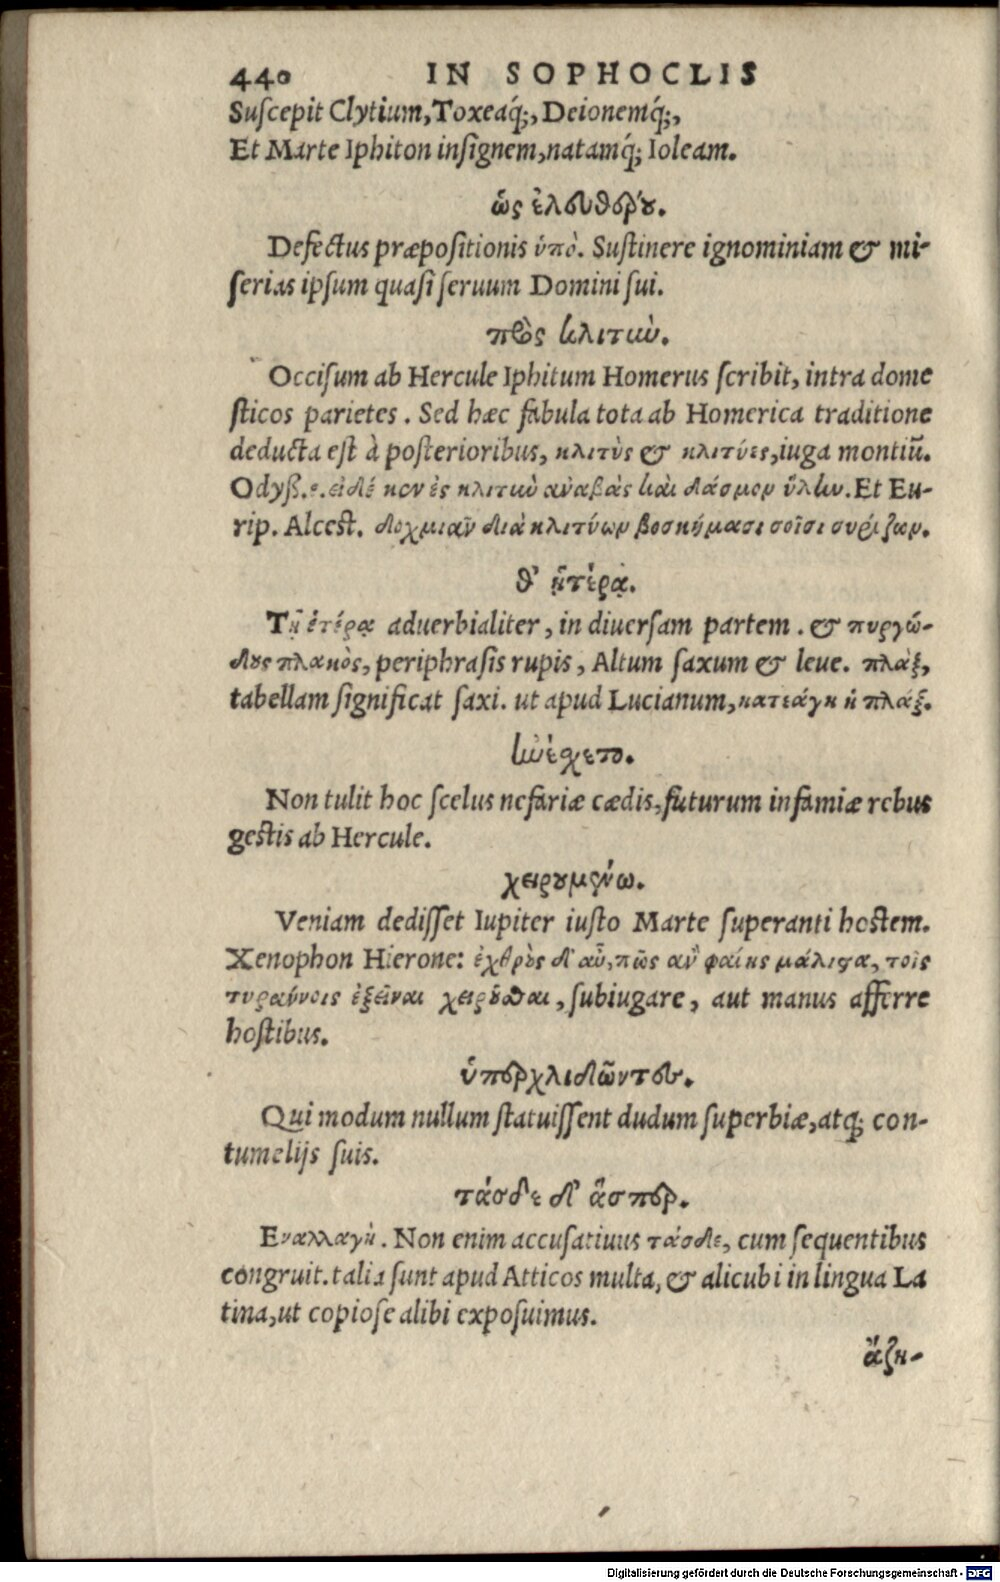 440 IN SOPHOCLIS
Suscepit Clytium, Toxeaq́;, Deionemq́;,
Et Marte Iphiton insignem, natamq́; Ioleam.
ὡς ἐλευθέρου.
Defectus præpositionis ὑπὸ. Sustinere ignominiam & mi-
serias ipsum quasi seruum Domini sui.
πρὸς κλιτιὼ.
Occisum ab Hercule Iphitum Homerus scribit, intra dome
sticos parietes. Sed hæc fabula tota ab Homerica traditione
deducta est à posterioribus, κλιτὺς & κλιτύες, iuga montiũ.
Odyß. ε. εἰ δέ κεν ἐς κλιτιὼ ἀναβὰς καὶ δάσκιον ὕλην. Et Eu-
rip. Alcest. δοχμιᾶν διὰ κλιτύων βοσκήμασι σοῖσι συρίζων.
θ' ἡτέρᾳ.
Τῇ ἑτέρᾳ aduerbialiter, in diuersam partem. & πυργώ-
δους πλακὸς, periphrasis rupis, Altum saxum & leue. πλὰξ,
tabellam significat saxi. ut apud Lucianum, κατεάγη ἡ πλάξ.
ἠνέσχετο.
Non tulit hoc scelus nefariæ cædis, futurum infamiæ rebus
gestis ab Hercule.
χειρουμένῳ.
Veniam dedisset Iupiter iusto Marte superanti hostem.
Xenophon Hierone: ἐχθροὺς δ' αὖ, πῶς ἂν φαίης μάλιστα, τοῖς
τυράννοις ἐξεῖναι χειροῦσθαι, subiugare, aut manus afferre
hostibus.
ὑπερχλιδῶντες.
Qui modum nullum statuissent dudum superbiæ, atq; con-
tumelijs suis.
τάσδε δ' ἅσπερ.
Εναλλαγή. Non enim accusatiuus τάσδε, cum sequentibus
congruit. talia sunt apud Atticos multa, & alicubi in lingua La
tina, ut copiose alibi exposuimus.
ἄζη-
Digitalisierung gefördert durch die Deutsche Forschungsgemeinschaft - DFG